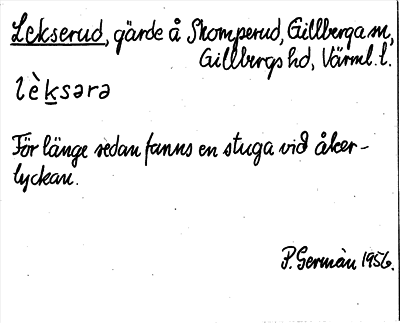 Lekserud, gärde å Skomperud, Gillberga sn,
Gillbergs hd, Värml. l.
lèksərə
För länge sedan fanns en stuga vid åker-
lyckan.
P. Germàn 1956.